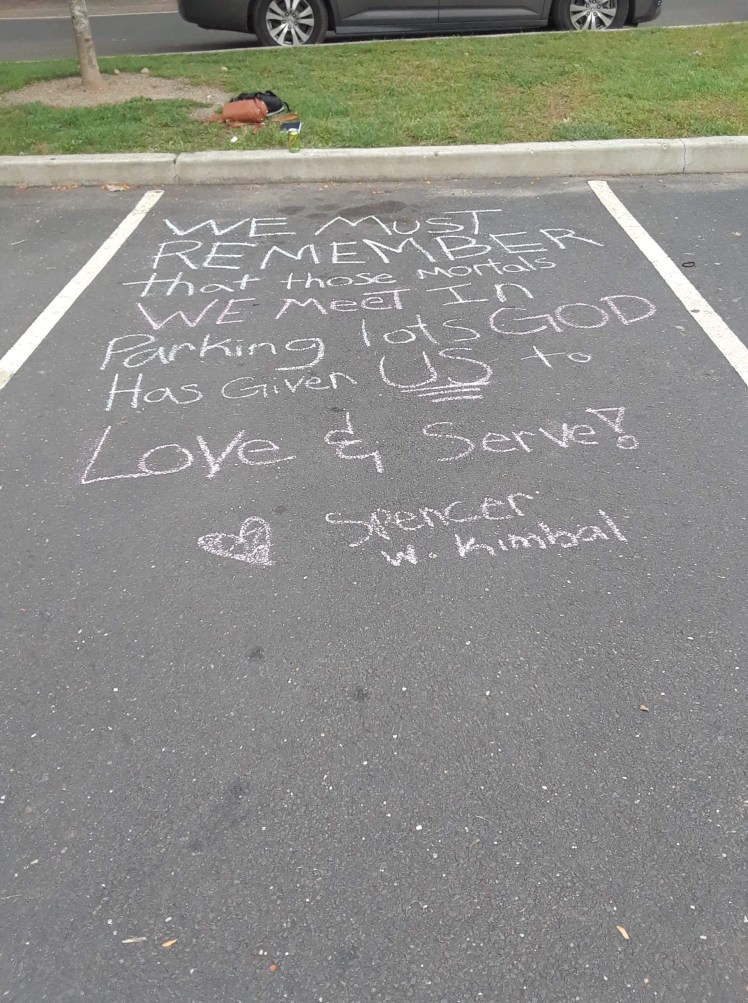 WE MUST
REMEMBER
that those mortals
WE Meet In
Parking lots GOD
Has Given US to
Love & Serve!
Spencer
W. Kimbal